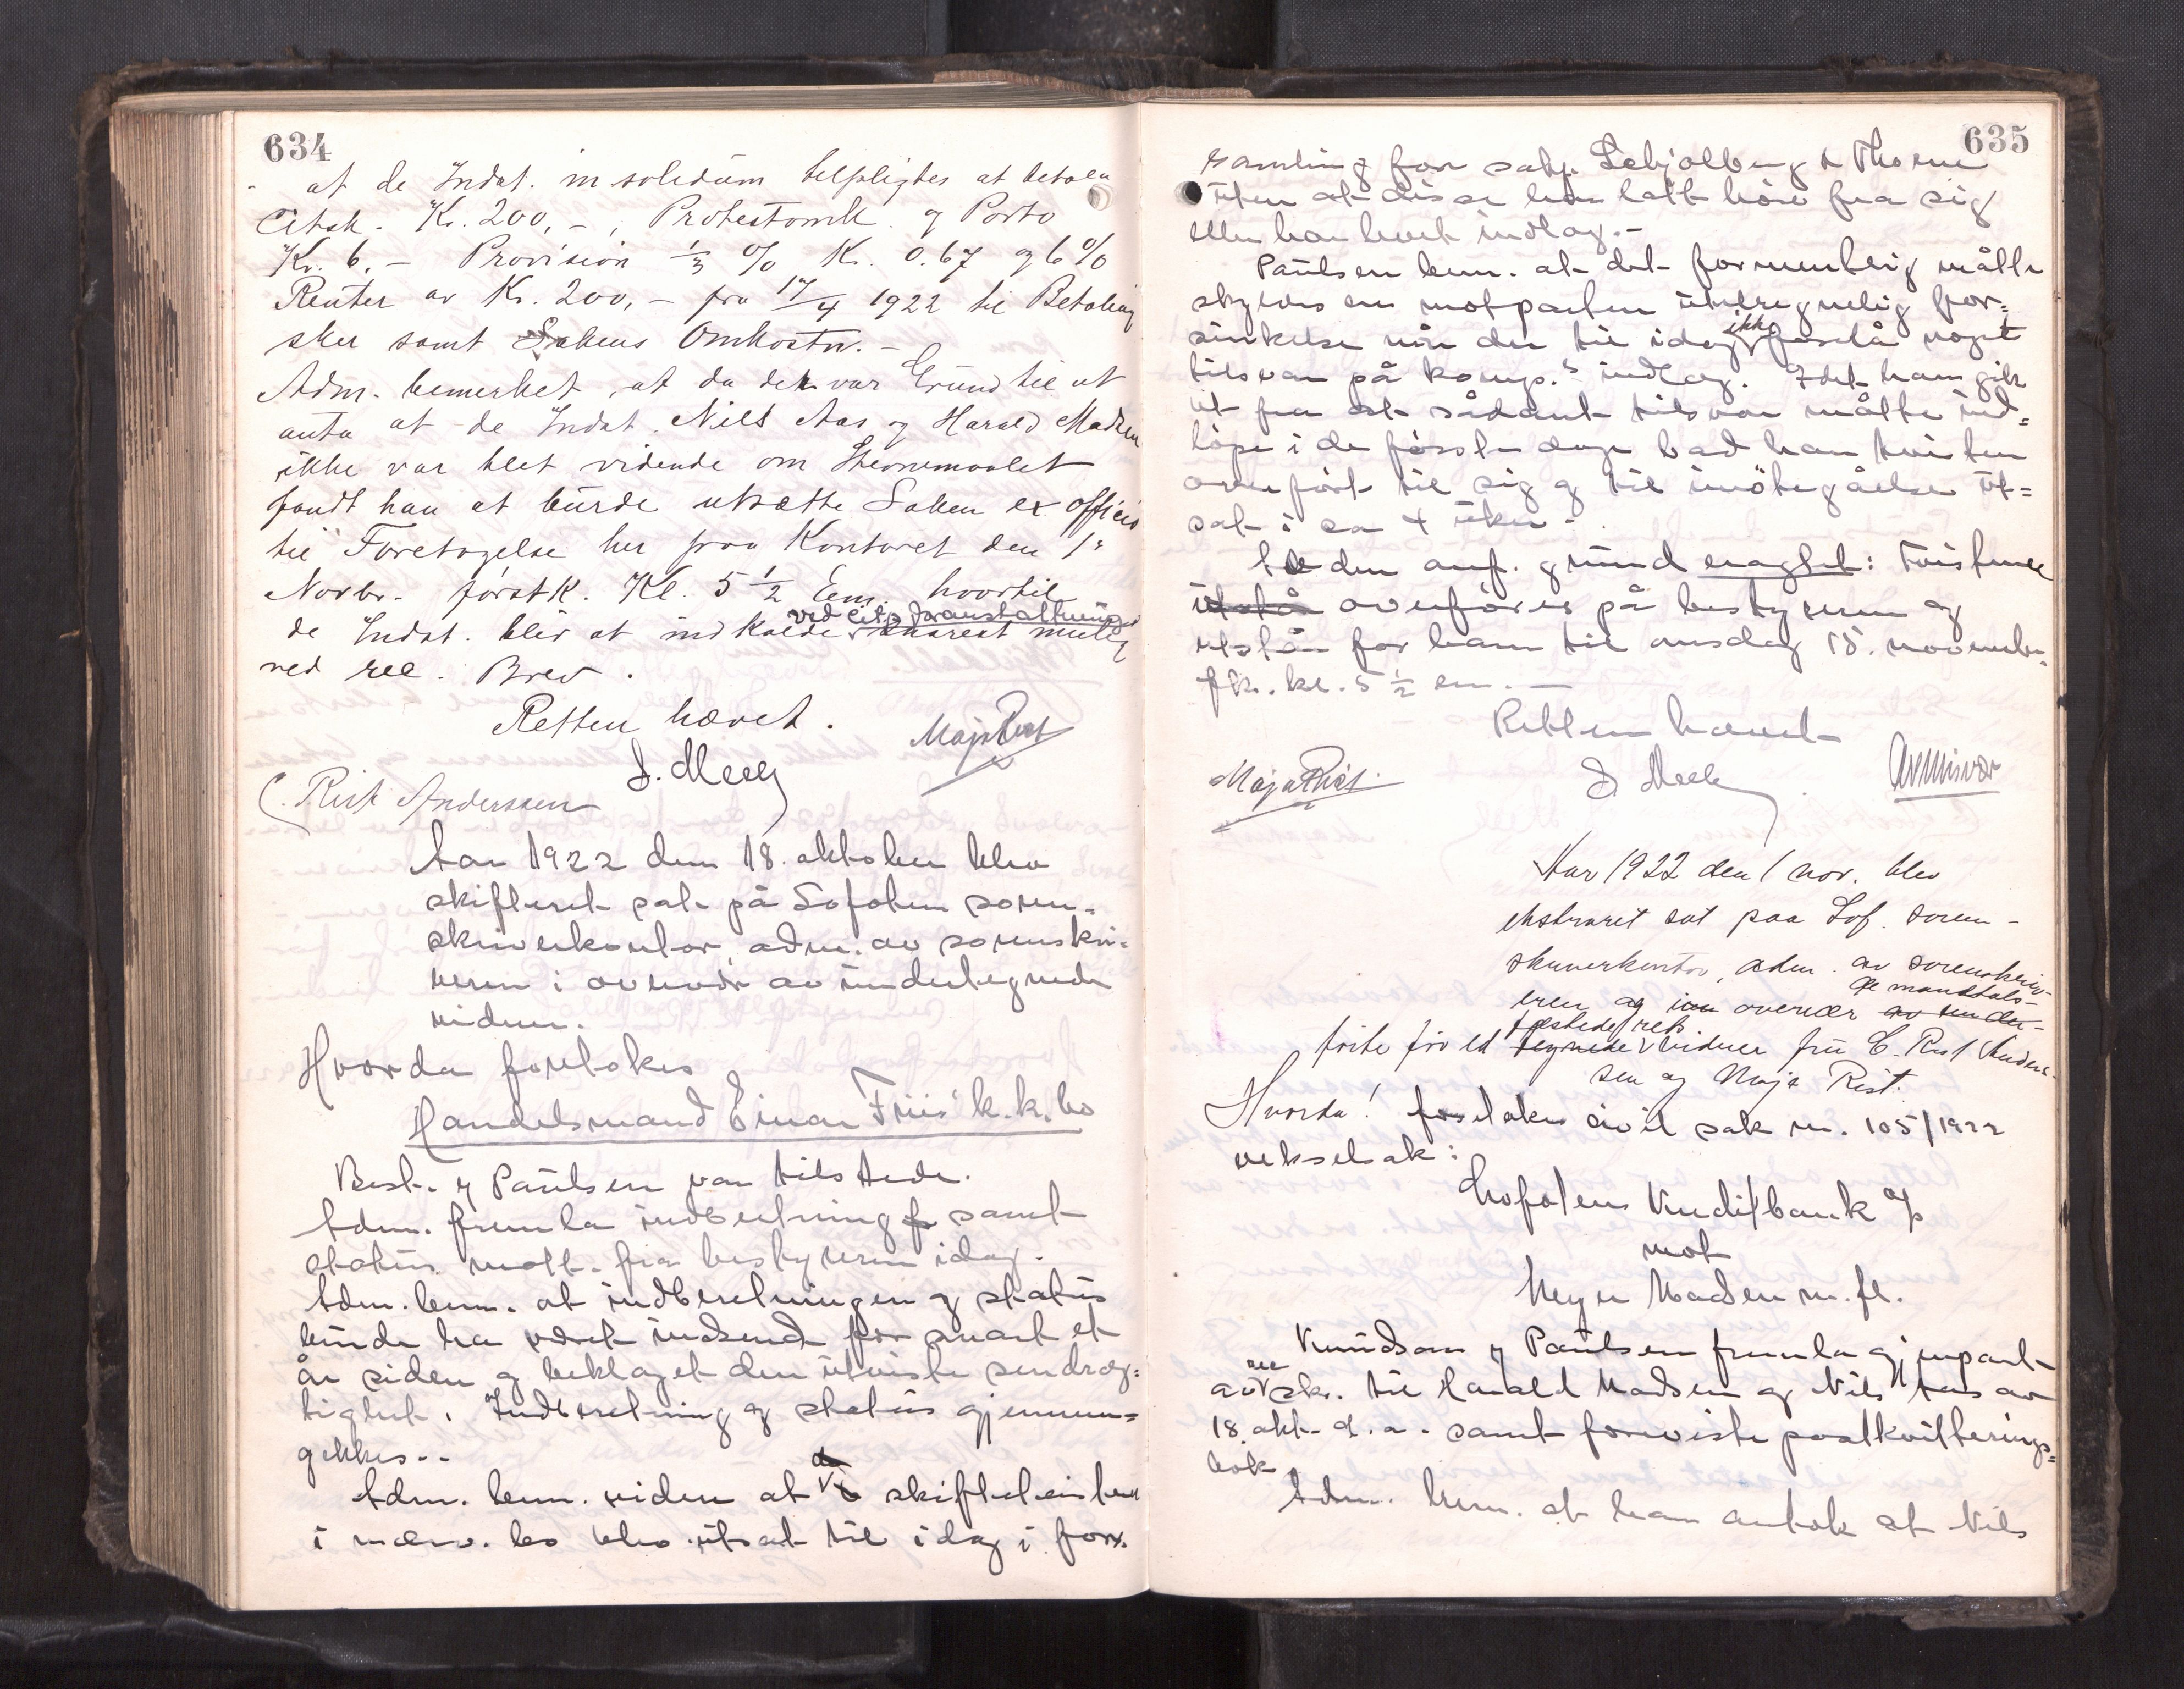 634
at de Indst. in solidum tilpligtes at betale
Citsk. Kr. 200,-, Protestomk. og Porto
Kr. 6,- Provision 1/3 % Kr. 0.67 og 6 %
Renter av Kr. 200,- fra 17/4 1922 til Betaling
sker samt Sakens Omkostn. -
Adm. bemerket, at da det var Grund til at
anta at de Indst. Nils Aas og Harald Madsen
ikke var blet vidende om Stevnemaalet
fandt han at burde utsætte Saken ex officio
til Foretagelse her fra Kontoret den 1ˢ
Novbr. førstk. Kl. 5 1/2 Em. hvortil
ved Cits. foranstaltning
de Indst. blir at indkalde snarest mulig
ved rec. Brev.
Retten hævet.
Maja Rist
J. Meek
C. Rist Anderssen
Aar 1922 den 18. oktober blev
skifteret sat på Lofoten soren-
skriverkontor, adm. av sorenskri-
veren i overvær av undertegnede
vidner.
Hvorda foretokes
Handelsmand Einar Friis' k.k. bo
Best. Paulsen var tilstede.
Adm. fremla indberetning samt
status mott. fra bestyreren idag.
Adm. bem. at indberetningen og status
burde ha været indsendt for snart et
år siden og beklaget den utviste sendræg-
tighet. Indberetning og status gjennem-
gikkes. -
Adm. bem. viden at skiftetvisten
i nærv. bo blev utsat til idag i for-
635
samling for sakf. Lebjolberg & Thorne
uten at disse har latt høre fra sig
eller har levert indlæg. -
Paulsen bem. at det formentlig måtte
skyldes en motparten utilregnelig for-
ikke
sinkelse når der til idag forelå noget
tilsvar på komp.ˢ indlæg. Idet han gik
ut fra at sådant tilsvar måtte ind-
løpe i de første dage bad han tvisten
overført til sig og til imøtegåelse ut-
sat i ca 4 uker. -
Av den anf. grund eragtet: Tvisten
utstår overføres på bestyreren og
utstår for ham til onsdag 15. november
fk. kl. 5 1/2 em. -
Retten hævet
Maja Rist.
J. Meek
Aar 1922 den 1 nov. blev
ekstraret sat paa Lof. soren-
skriverkontor, adm. av sorenskriv-
eren og i overvær av under-
de mandtals-
tegnede vidner fru C. Rist Anders-
førte for ed
sen og Maja Rist.
Hvorda! foretokes civil sak nr. 105/1922
vekselsak:
Lofotens Kreditbank a/s
mot
Meyer Madsen m. fl.
Knudsen Paulsen fremla gjenpart
rec
av skr. til Harald Madsen og Nils Aas av
18. okt. d. a. samt foreviste postkvitterings-
bok
Adm. bem. at han antok at Nils